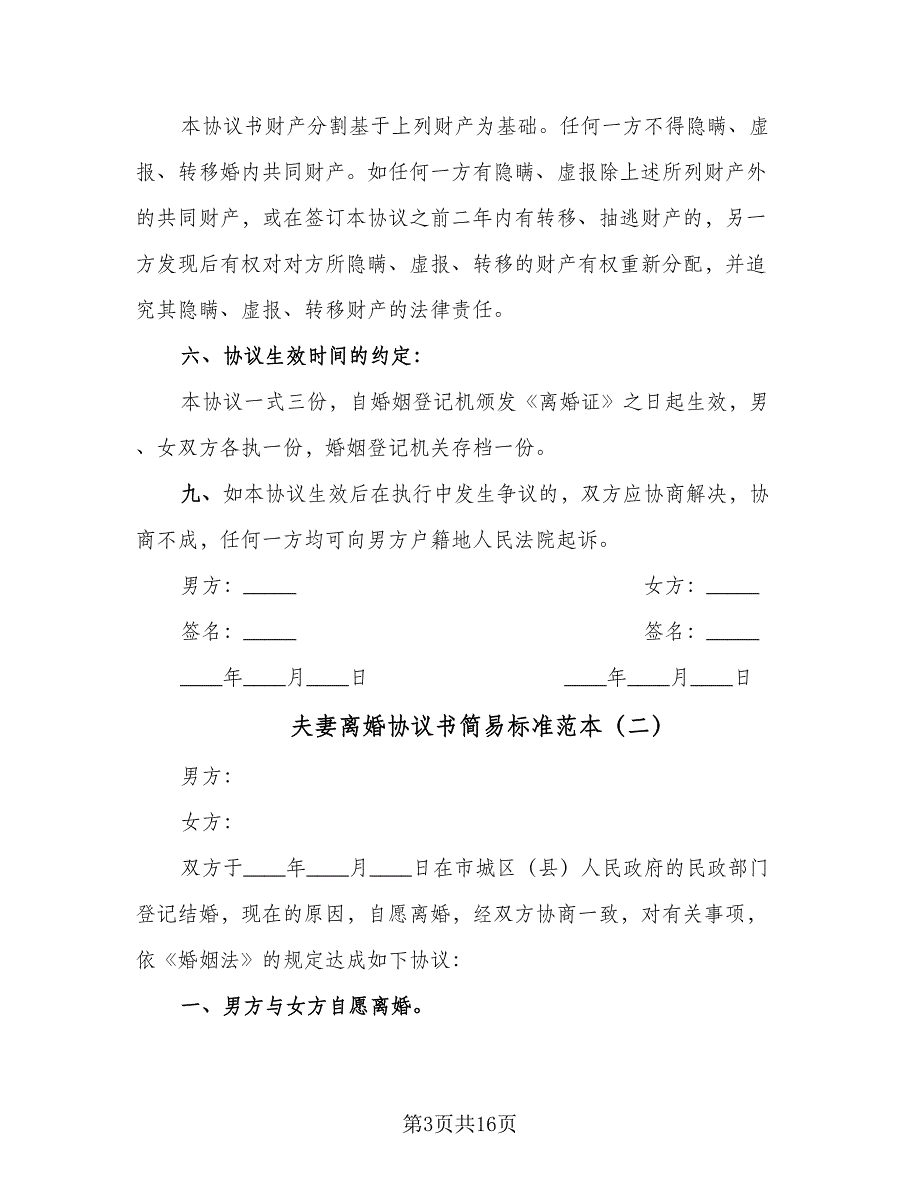 本协议书财产分割基于上列财产为基础。任何一方不得隐瞒、虚
报、转移婚内共同财产。如任何一方有隐瞒、虚报除上述所列财产外
的共同财产，或在签订本协议之前二年内有转移、抽逃财产的，另一
方发现后有权对对方所隐瞒、虚报、转移的财产有权重新分配，并追
究其隐瞒、虚报、转移财产的法律责任。
六、协议生效时间的约定：
本协议一式三份，自婚姻登记机颁发《离婚证》之日起生效，男
、女双方各执一份，婚姻登记机关存档一份。
九、如本协议生效后在执行中发生争议的，双方应协商解决，协
商不成，任何一方均可向男方户籍地人民法院起诉。
男方：_____ 女方：_____
签名：_____ 签名：_____
____年____月____日 ____年____月____日
夫妻离婚协议书简易标准范本（二）
男方：
女方：
双方于____年____月____日在市城区（县）人民政府的民政部门
登记结婚，现在的原因，自愿离婚，经双方协商一致，对有关事项，
依《婚姻法》的规定达成如下协议：
一、男方与女方自愿离婚。
第3页共16页